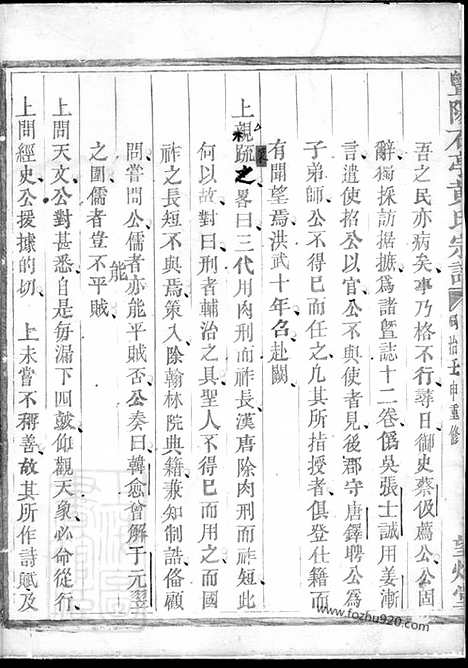 暨陽石亭黃氏宗譜 民國拾壬申重修 望烟堂
吾之民亦病矣事乃格不行尋日御史蔡伋薦公公固
辭獨採訪據摭為諸暨誌十二卷僞吳張士誠用姜漸
言遣使招公以官公不與使者見後郡守唐鐸聘公為
子弟師公不得已而任之凡其所指授者俱登仕籍而
有聞望焉洪武十年名赴闕
上親疏之畧曰三代用肉刑而祚長漢唐除肉刑而祚短此
何以故對曰刑者輔治之具聖人不得已而用之而國
祚之長短不與焉策入除翰林院典籍兼知制誥俻顧
問嘗問公儒者亦能平賊否公奏曰韓愈會解于元翌
之圍儒者豈不能平賊
上問天文公對甚悉自是每漏下四皷仰觀天象必命從行
上問經史公援據的切 上未嘗不稱善故其所作詩賦及
www.fozhu920.com